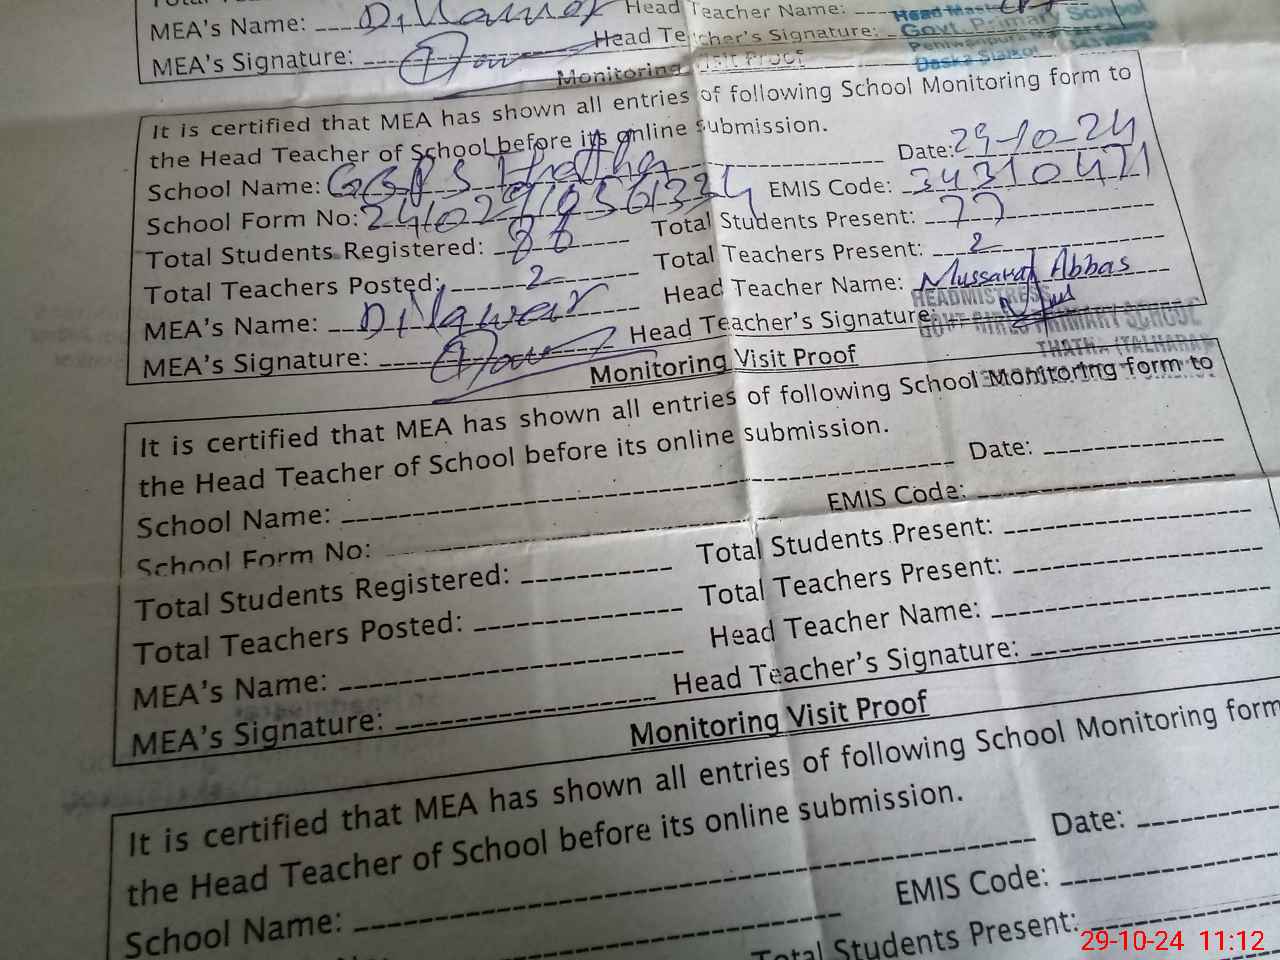 MEA's Name: Dilawar Head Teacher Name:
MEA's Signature: Head Teacher's Signature:
Head Mast
Govt. Primary School
Daska Sialkot
Monitoring Visit Proof
It is certified that MEA has shown all entries of following School Monitoring form to
the Head Teacher of School before its online submission.
School Name: GGPS Thatha Date: 29-10-24
School Form No: EMIS Code: 34310471
Total Students Registered: 86 Total Students Present: 77
Total Teachers Posted: 2 Total Teachers Present: 2
MEA's Name: Dilawar Head Teacher Name: Mussarat Abbas
MEA's Signature: Head Teacher's Signature:
HEADMISTRESS
GOVT GIRLS PRIMARY SCHOOL
THATHA (TALHARA)
Monitoring Visit Proof
It is certified that MEA has shown all entries of following School Monitoring form to
the Head Teacher of School before its online submission.
School Name: Date:
School Form No: EMIS Code:
Total Students Registered: Total Students Present:
Total Teachers Posted: Total Teachers Present:
MEA's Name: Head Teacher Name:
MEA's Signature: Head Teacher's Signature:
Monitoring Visit Proof
It is certified that MEA has shown all entries of following School Monitoring form
the Head Teacher of School before its online submission.
School Name: Date:
EMIS Code:
Total Students Present:
29-10-24 11:12